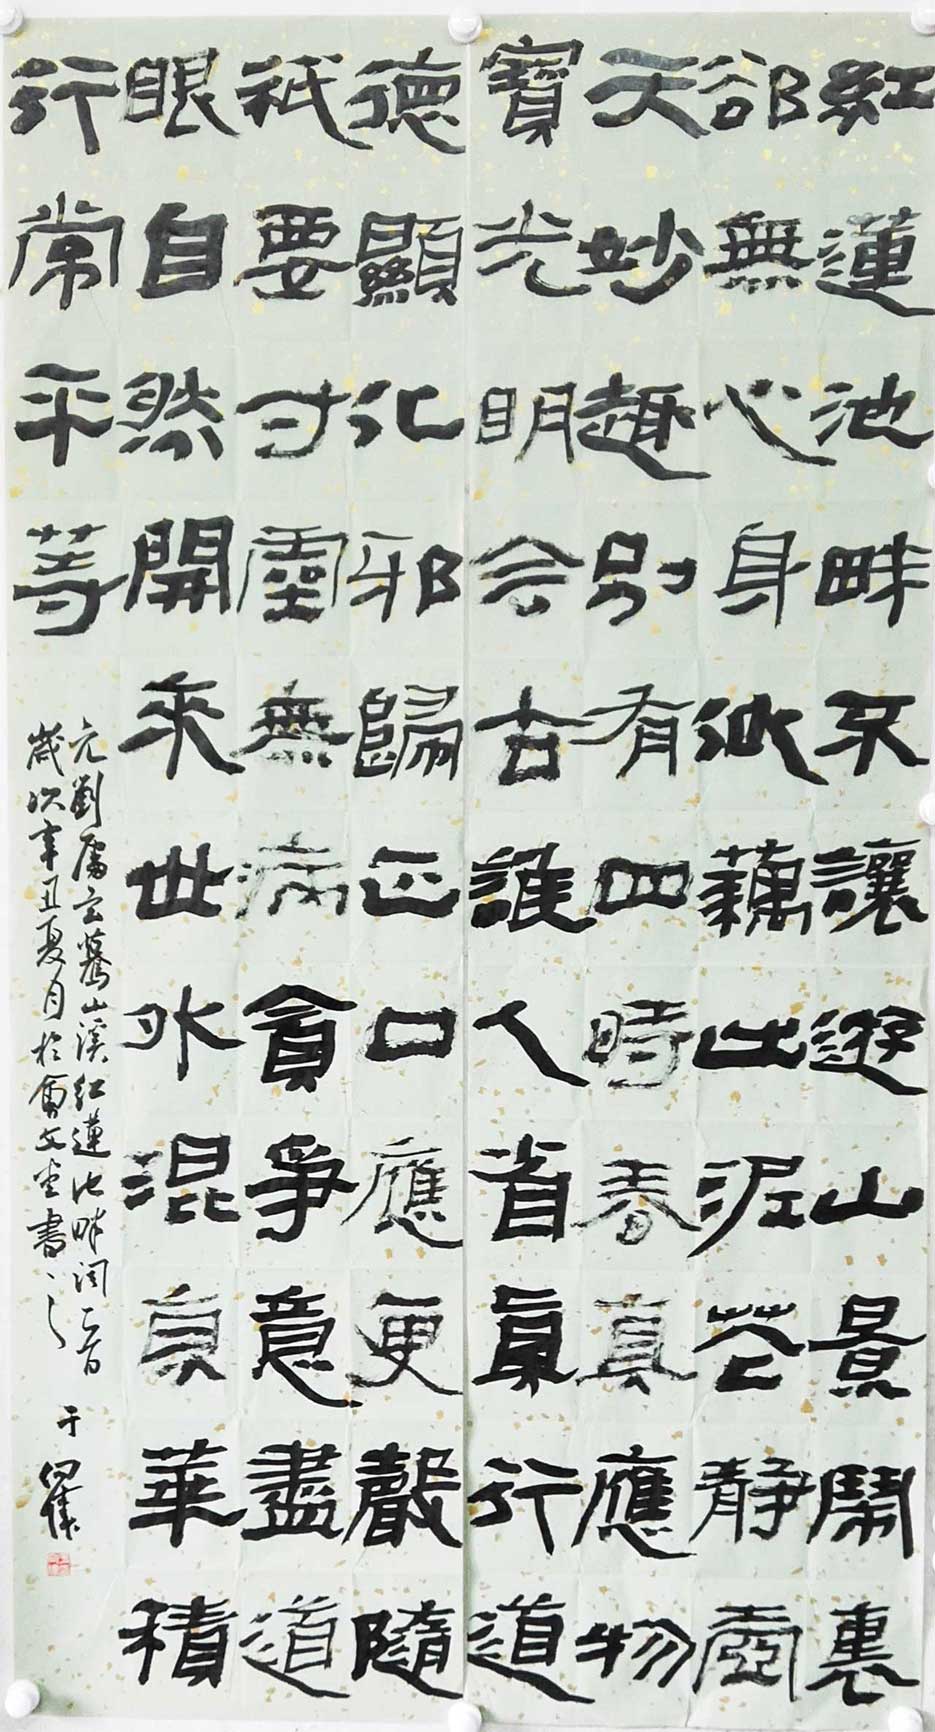 紅蓮池畔不讓遊山景鬧裏
卻無心身似藕出泥花靜虛
天妙趣別有四時春真應物
寶光明今古誰人省真行道
德顯化邪歸正口應更聲隨
祇要寸靈無病貪爭意盡道
眼自然開乘世外混真華積
行常平等
元劉處玄驀山溪紅蓮池畔詞一首
歲次辛丑夏月於會文堂書之
于